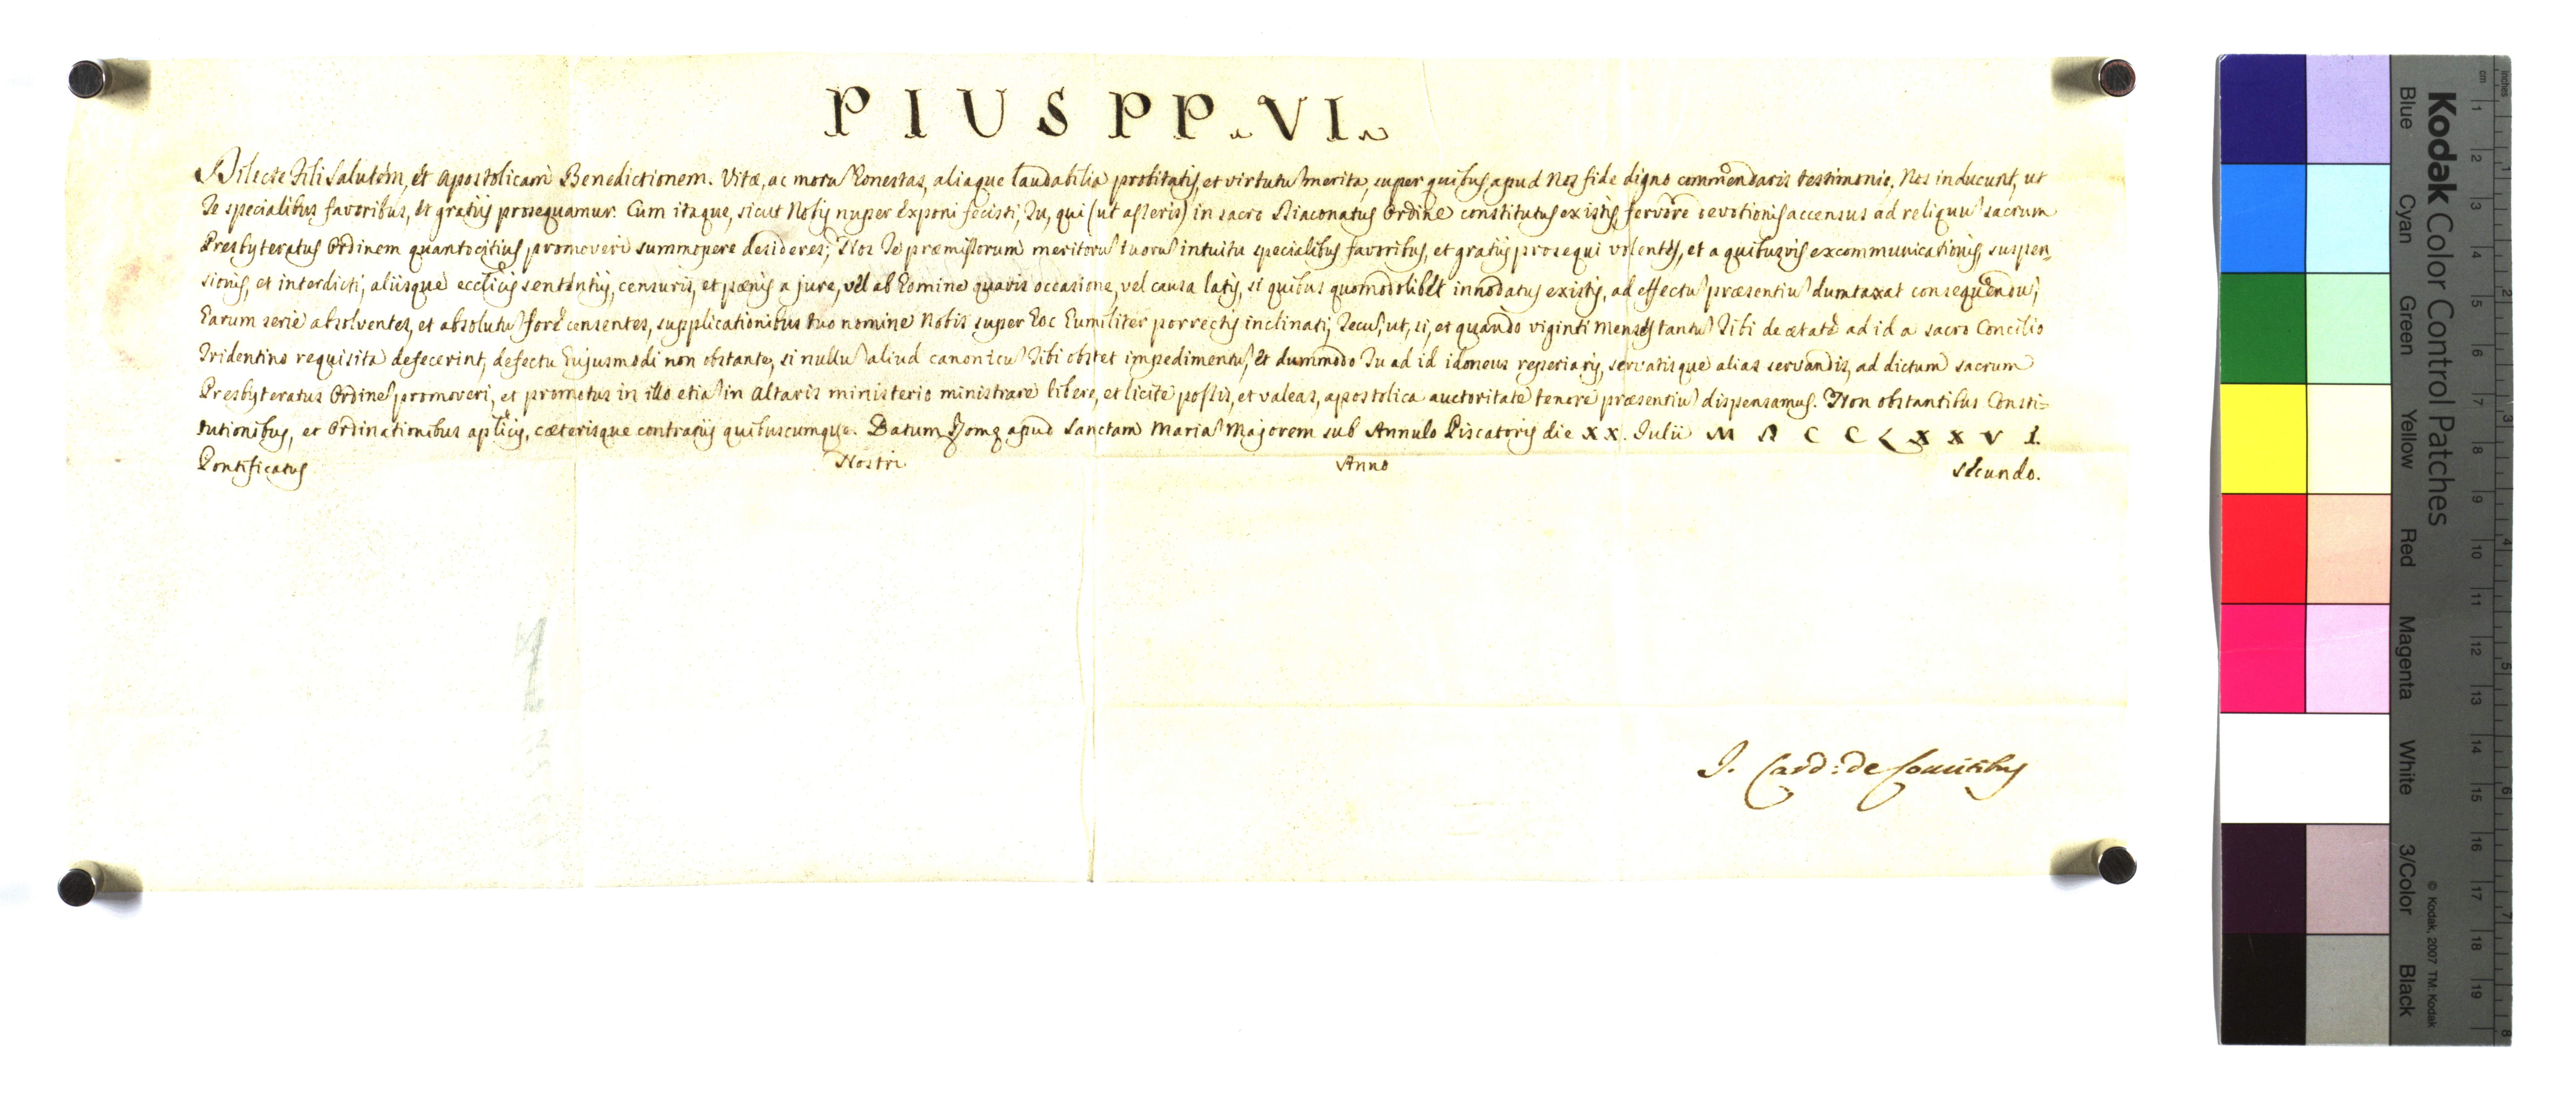 PIUS PP. VI.
Dilecte Fili Salutem, et Apostolicam Benedictionem. Vitæ, ac moru honestas, aliaque laudabilia probitatis, et virtutu merita, super quibus apud Nos fide digno commendaris testimonio, Nos inducunt, ut
Te specialibus favoribus, et gratiis prosequamur. Cum itaque, sicut Nobis nuper exponi fecisti, Tu, qui (ut asseris) in sacro Diaconatus Ordine constitutus existis fervore devotionis accensus ad reliquu sacrum
Presbyteratus Ordinem quantocitius promoveri summopere desideres; Nos Te præmissorum meritoru tuoru intuitu specialibus favoribus, et gratiis prosequi volentes, et a quibusvis excommunicationis, suspen
sionis, et interdicti, aliisque ecclicis sententiis, censuris, et pænis a jure, vel ab homine quavis occasione, vel causa latis, si quibus quomodolibet innodatus existis, ad effectu præsentiu dumtaxat consequendu,
harum serie absolventes, et absolutu fore censentes, supplicationibus tuo nomine Nobis super hoc humiliter porrectis inclinati, Tecu, ut, si, et quando viginti menses tantu Tibi de ætate ad id a sacro Concilio
Tridentino requisita defecerint, defectu hujusmodi non obstante, si nullu aliud canonicu Tibi obstet impedimentu, et dummodo Tu ad id idoneus reperiaris, servatisque alias servandis, ad dictum sacrum
Presbyteratus Ordine promoveri, et promotus in illo etia in Altaris ministerio ministrare libere, et licite possis, et valeas, apostolica auctoritate tenore præsentiu dispensamus. Non obstantibus Consti=
tutionibus, et Ordinationibus aplicis, cæterisque contrariis quibuscumque. Datum Romæ apud Sanctam Maria Majorem sub Annulo Piscatoris die XX. Julii M D C C L X X V I.
Pontificatus Nostri Anno secundo.
I. Card: de Comitibus
Kodak Color Control Patches
Blue Cyan Green Yellow Red Magenta White 3/Color Black
© Kodak, 2007 TM: Kodak
cm 1 2 3 4 5 6 7 8 9 10 11 12 13 14 15 16 17 18 19
inches 1 2 3 4 5 6 7 8